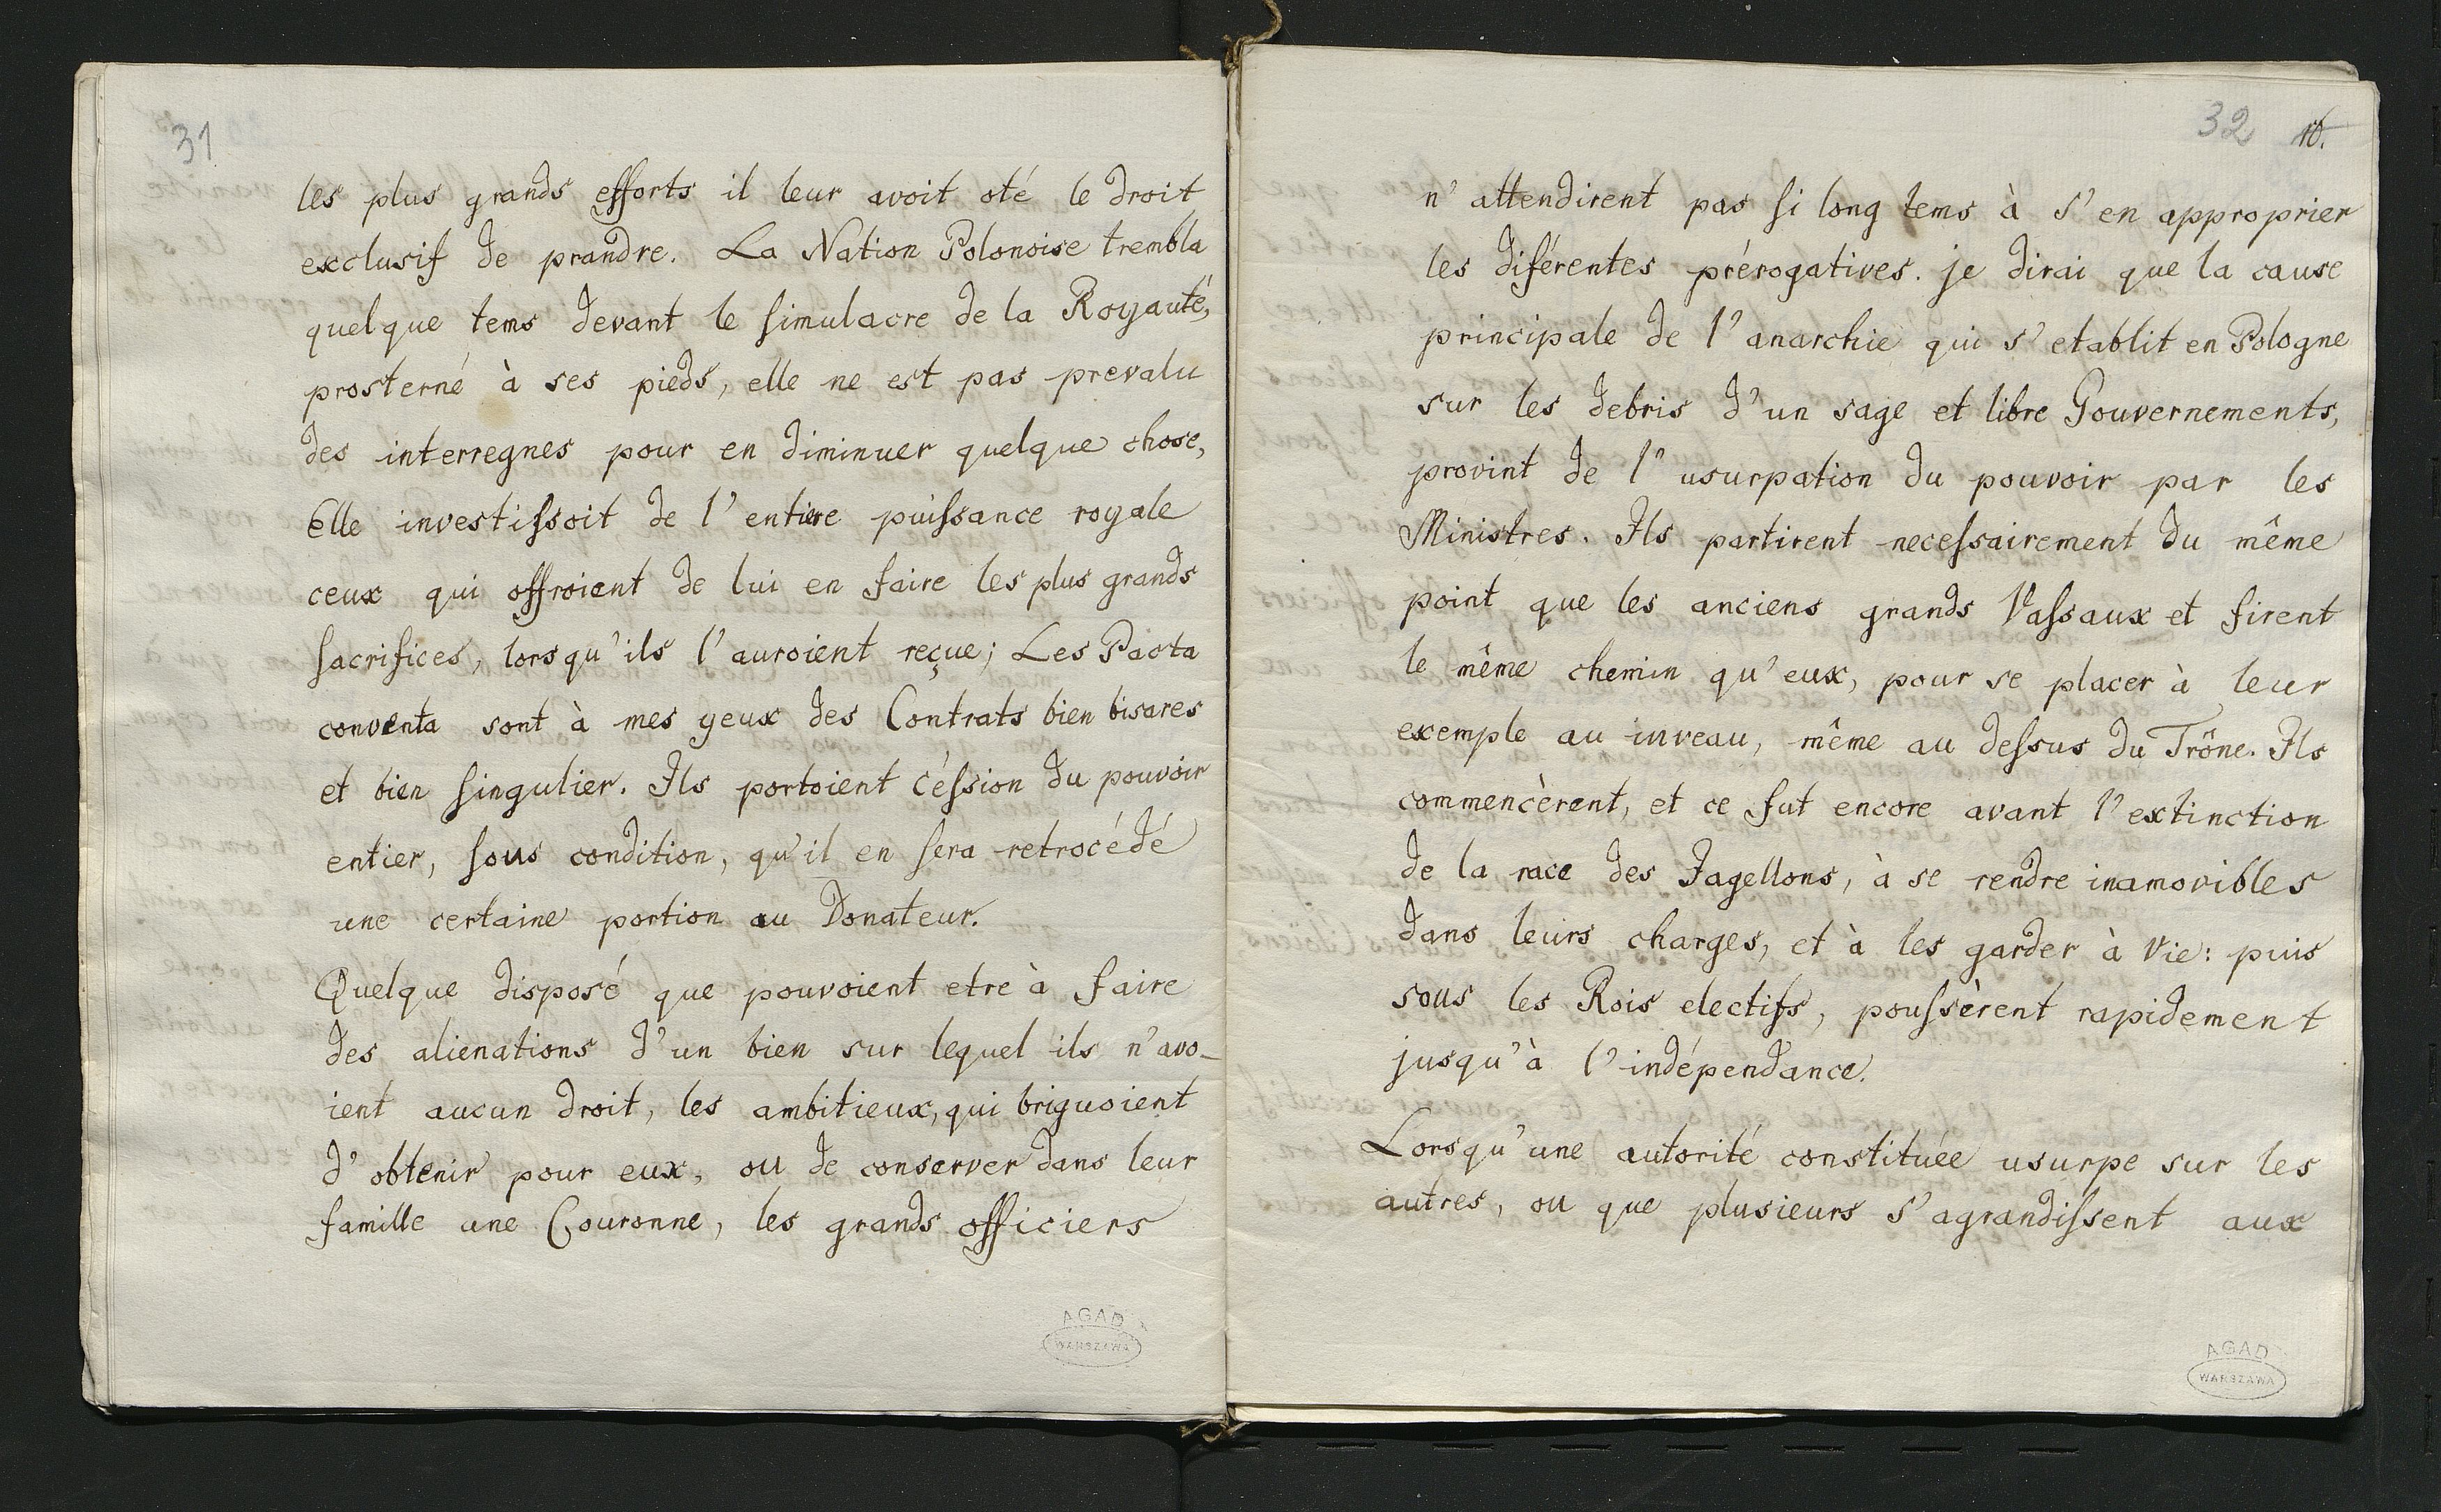 31
les plus grands efforts il leur avoit oté le droit
exclusif de prandre. La Nation Polonoise trembla
quelque tems devant le simulacre de la Royauté,
prosterné à ses pieds, elle ne est pas prevalu
des interregnes pour en diminuer quelque chose,
Elle investissoit de l'entiere puissance royale
ceux qui offroient de lui en faire les plus grands
sacrifices, lorsqu'ils l'auroient reçue; Les Pacta
conventa sont à mes yeux des Contrats bien bisares
et bien singulier. Ils portoient céssion du pouvoir
entier, sous condition, qu'il en sera retrocédé
une certaine portion au Donateur.
Quelque disposé que pouvoient etre à faire
des alienations d'un bien sur lequel ils n'avo-
ient aucun droit, les ambitieux, qui briguoient
d'obtenir pour eux, ou de conserver dans leur
famille une Couronne, les grands officiers
AGAD
WARSZAWA
32 16.
n'attendirent pas si long tems à s'en approprier
les diférentes prérogatives. je dirai que la cause
principale de l'anarchie qui s'etablit en Pologne
sur les debris d'un sage et libre Gouvernements,
provint de l'usurpation du pouvoir par les
Ministres. Ils partirent necessairement du même
point que les anciens grands Vassaux et firent
le même chemin qu'eux, pour se placer à leur
exemple au inveau, même au dessus du Trône. Ils
commencèrent, et ce fut encore avant l'extinction
de la race des Jagellons, à se rendre inamovibles
dans leurs charges, et à les garder à vie: puis
sous les Rois electifs, poussèrent rapidement
jusqu'à l'indépendance.
Lorsqu'une autorité constituée usurpe sur les
autres, ou que plusieurs s'agrandissent aux
AGAD
WARSZAWA